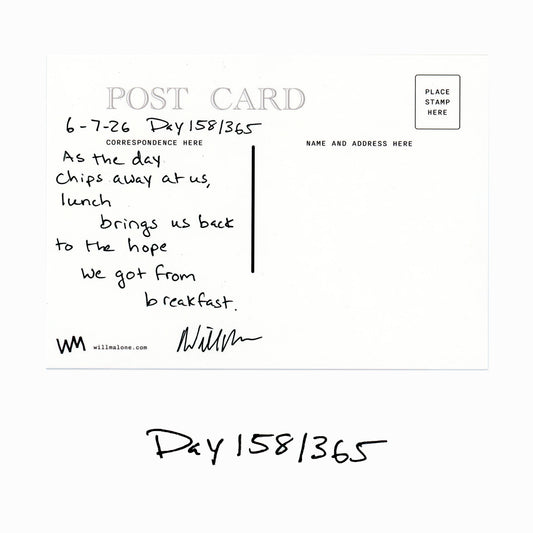 POST CARD
PLACE
STAMP
HERE
6-7-26 Day 158/365
CORRESPONDENCE HERE
NAME AND ADDRESS HERE
As the day
chips away at us,
lunch
brings us back
to the hope
we got from
breakfast.
WM willmalone.com
Day 158/365